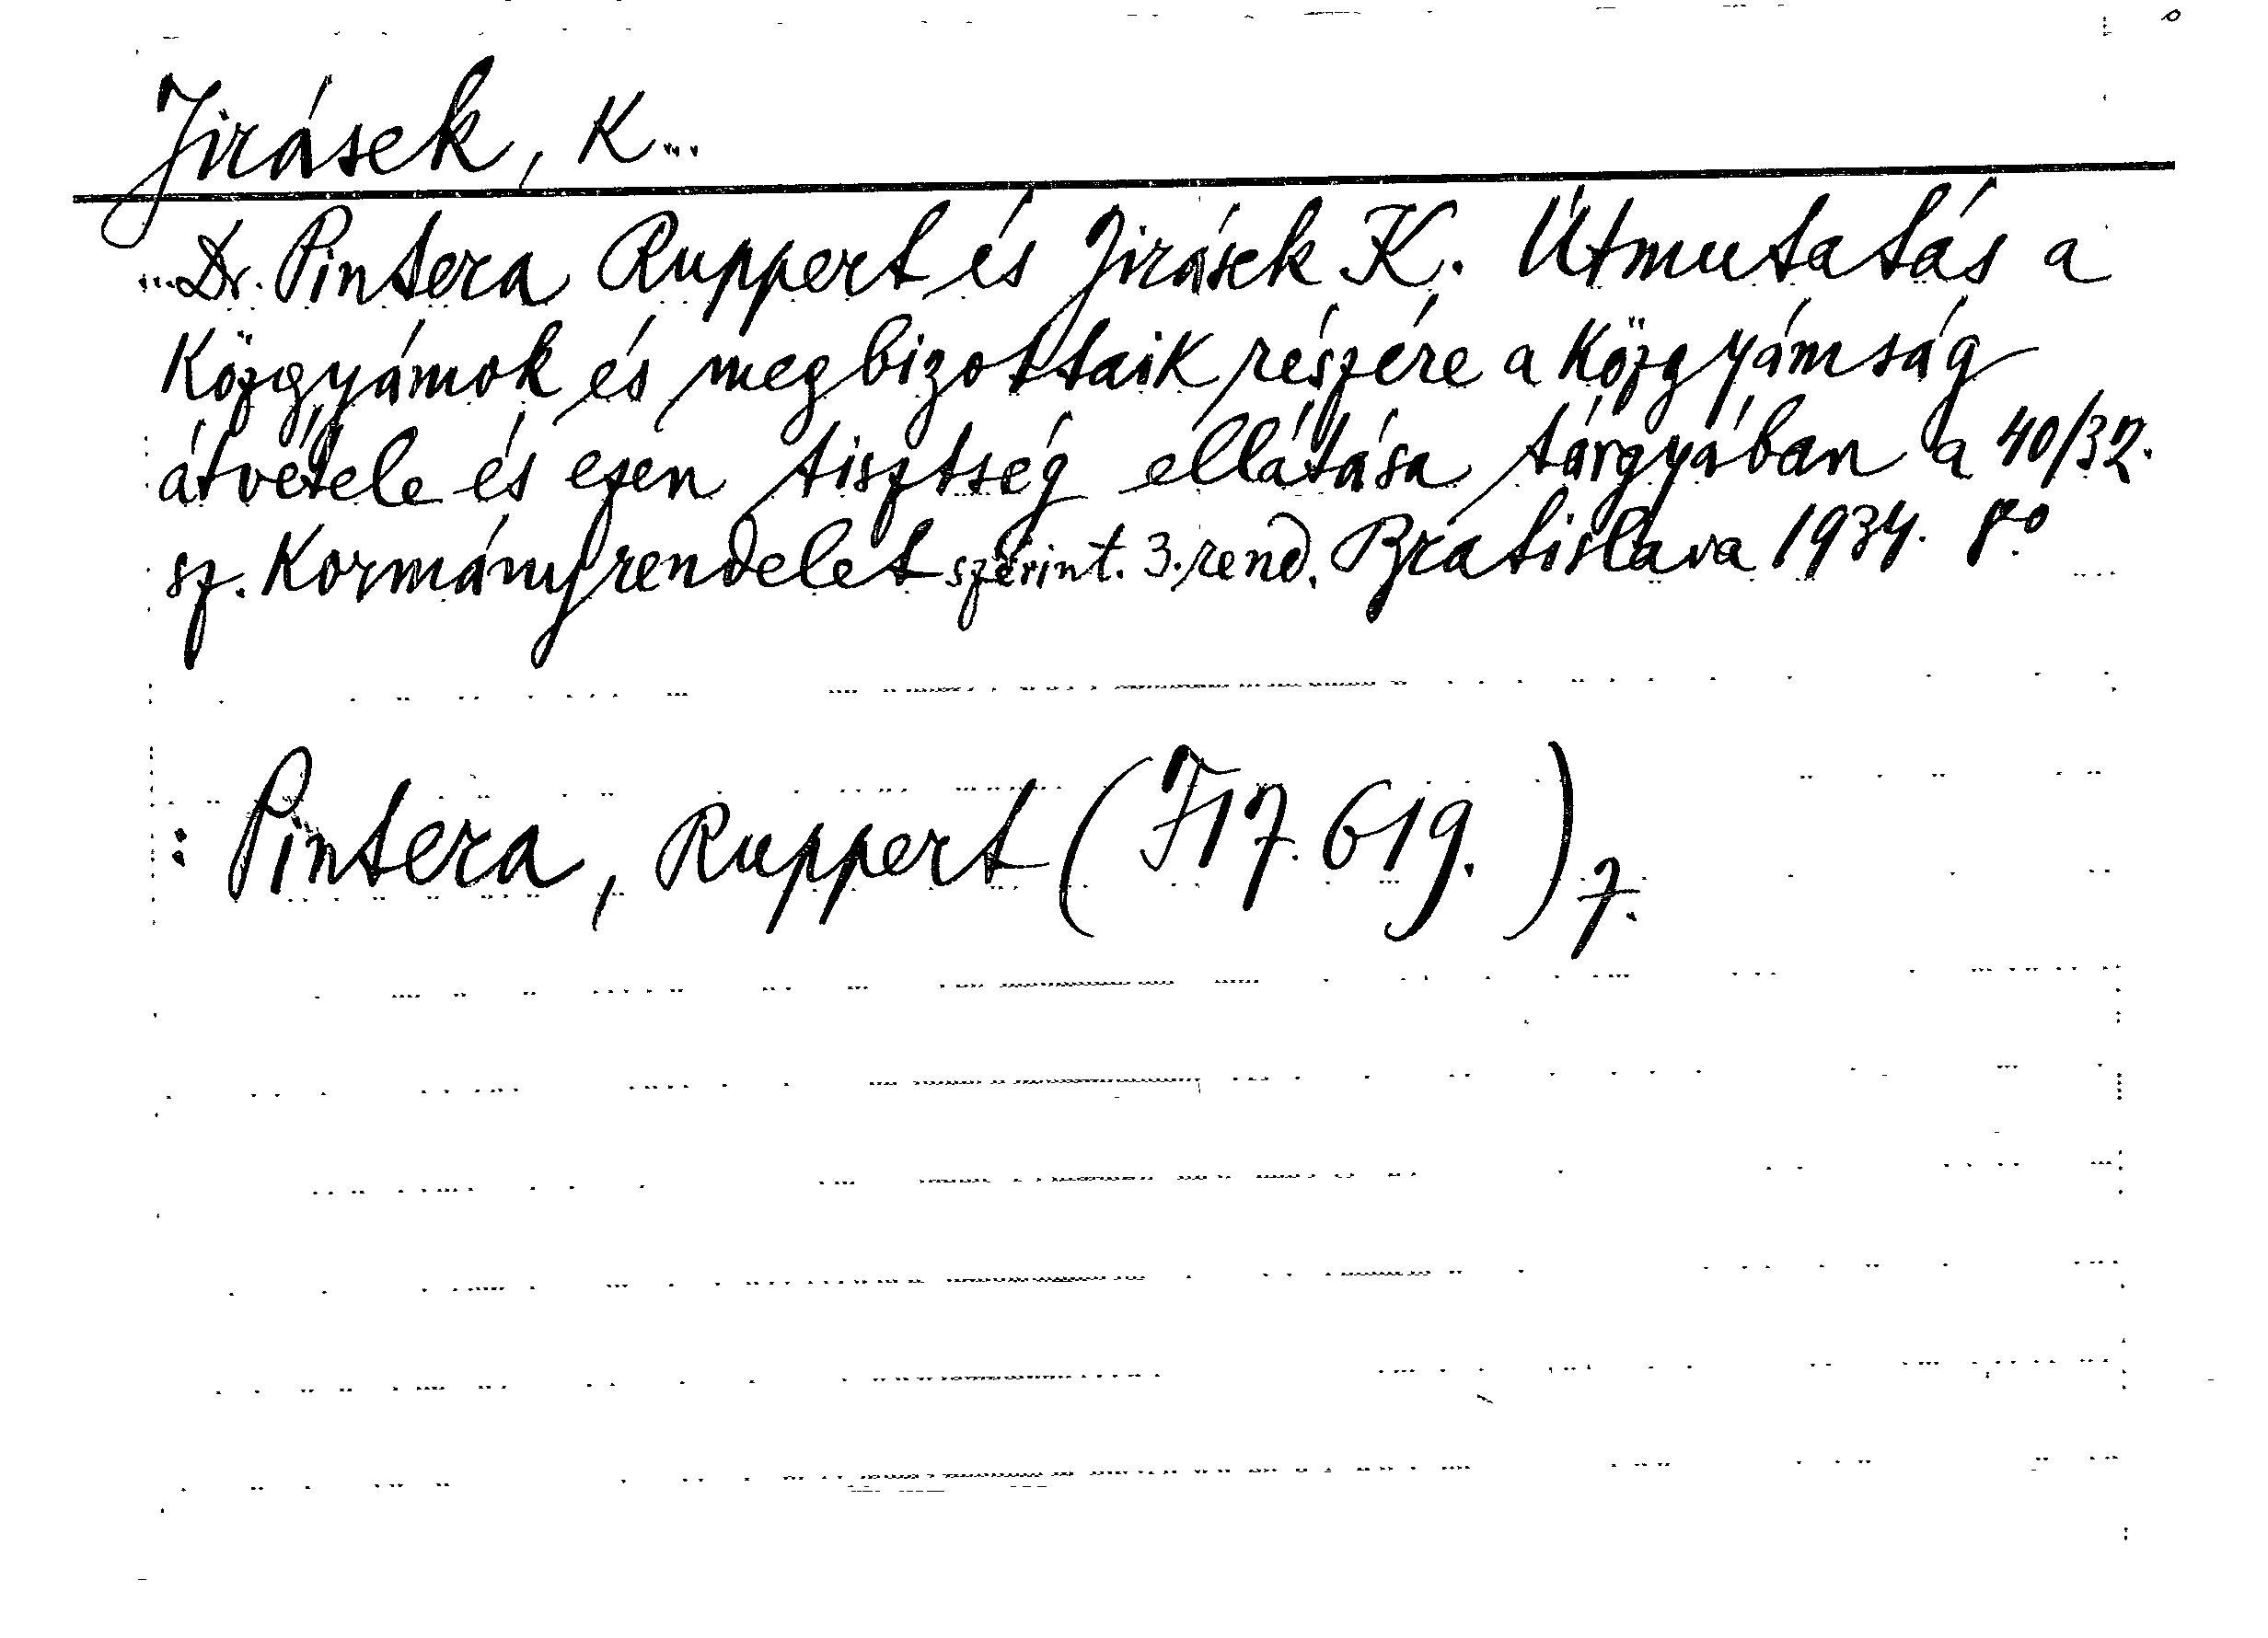 Jirásek, K...
...Dr. Pintera Ruppert és Jirásek K. Útmutatás a
közgyámok és megbizottaik részére a közgyámság
átvétele és ezen tisztség ellátása tárgyában a 40/32.
sz. Kormányrendelet szerint. 3. rend. Bratislava 1934. 8°
: Pintera, Ruppert (F17.619.)7.